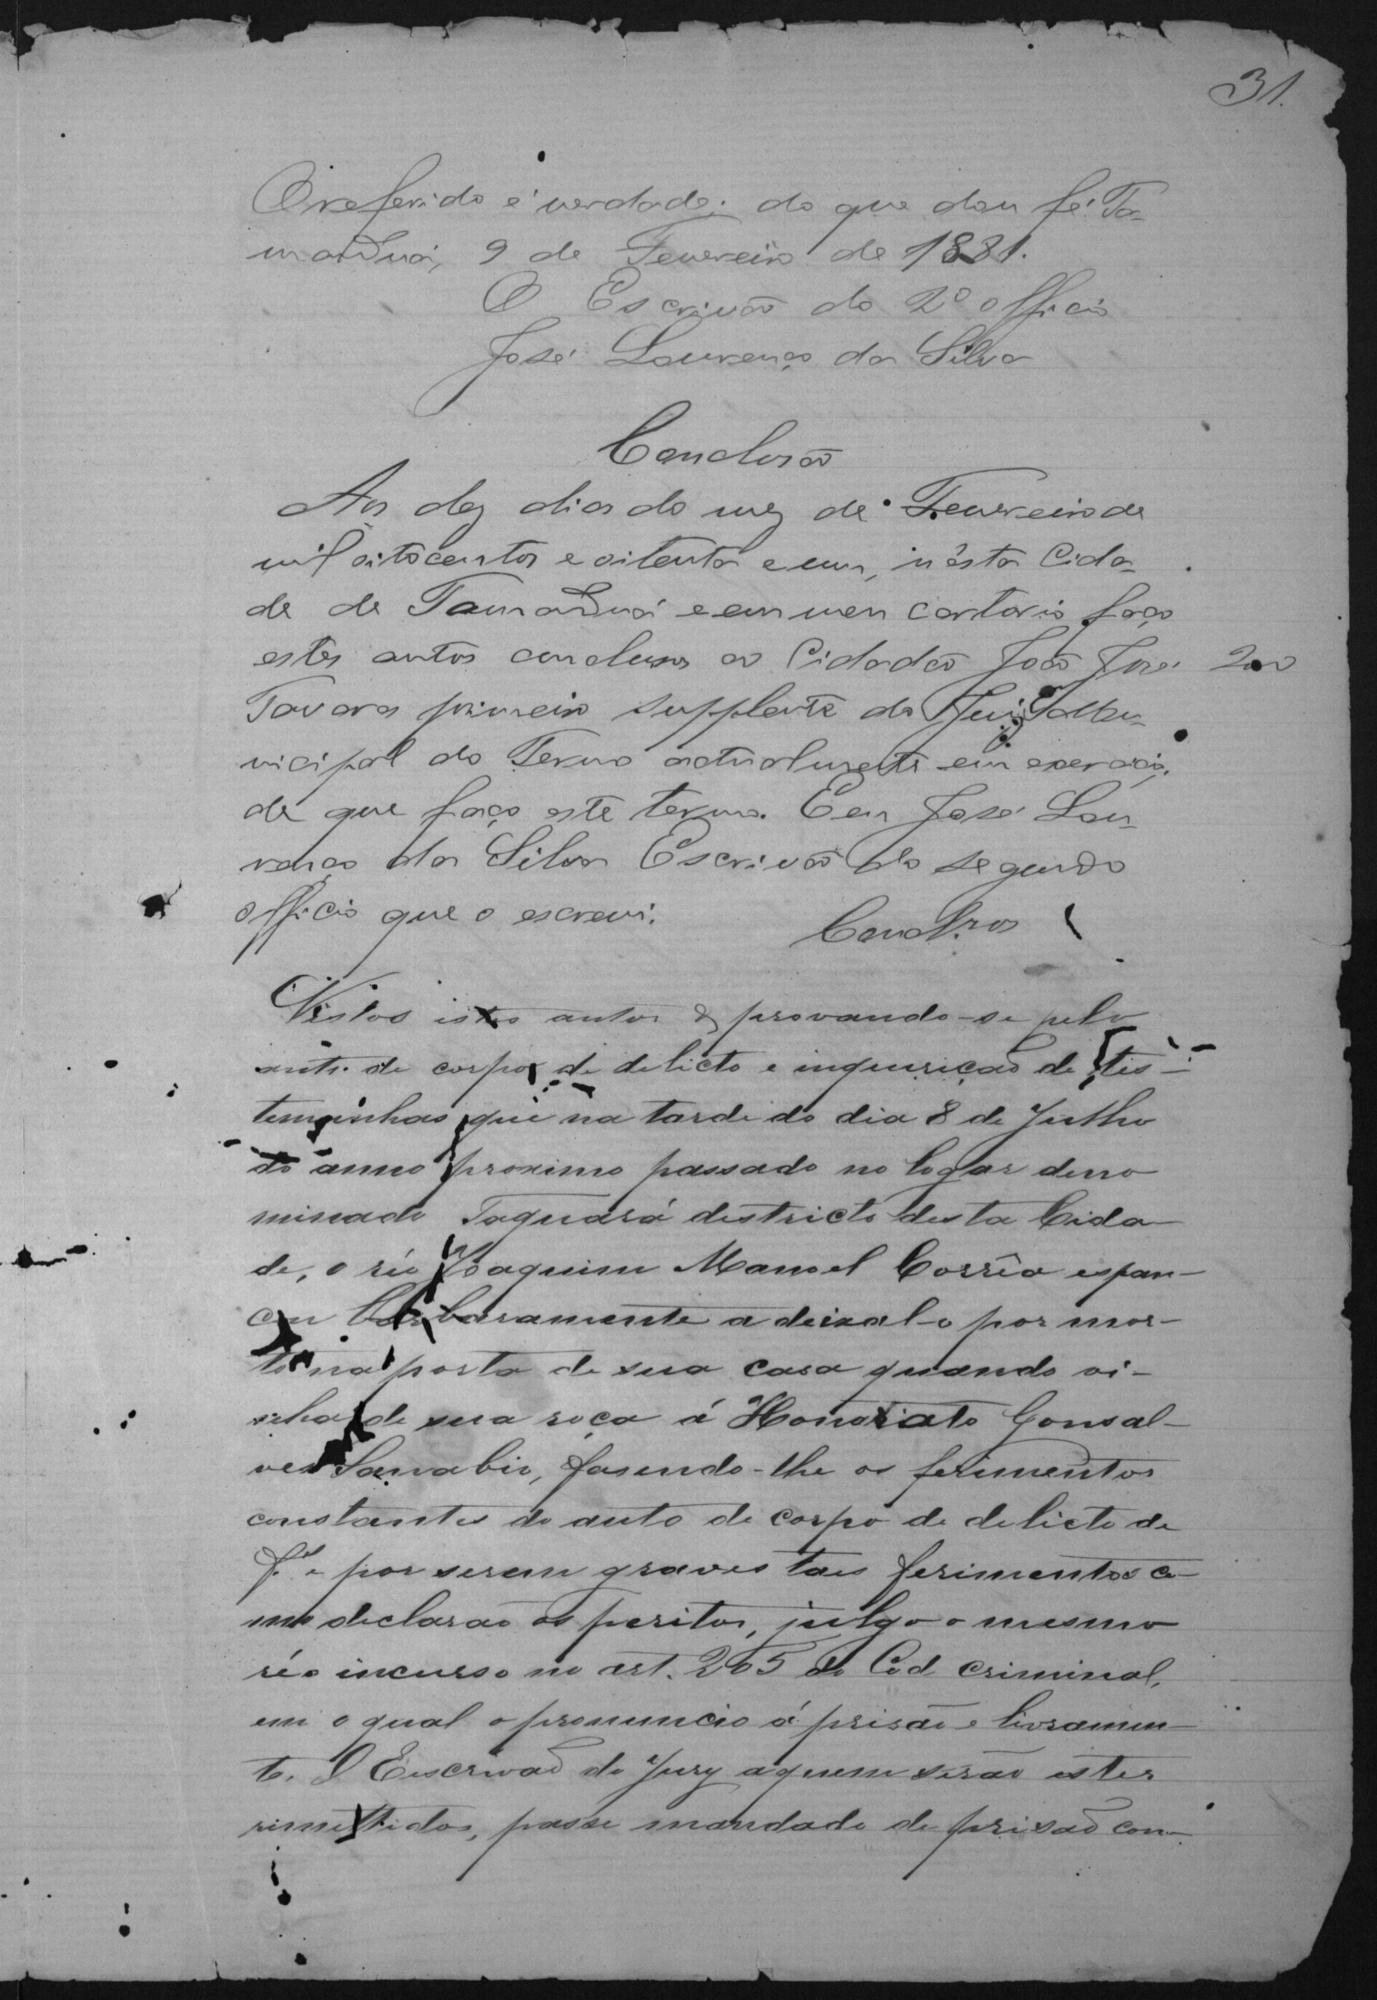 31.
O referido é verdade; do que dou fé. Ta-
manduá, 9 de Fevereiro de 1881.
O Escrivão do 2º officio
José Lourenço da Silva
Conclusão
Aos dez dias do mez de Fevereiro de
mil oitocentos e oitenta e um, n'ésta Cida-
de de Tamanduá e em meu cartorio faço
estes autos conclusos ao Cidadão João José 200
Tavares primeiro supplente do Juiz Mu-
nicipal do Termo actualmente em exercicio,
de que faço este termo. Eu José Lou-
renço da Silva Escrivão do segundo
officio que o escrevi.
Concl.sos
Vistos estes autos & provando-se pelo
auto de corpo de delicto e inquirição de tes-
temunhas que na tarde do dia 8 de Julho
do anno proximo passado no logar deno
minado Taquara districto desta Cida-
de, o réo Joaquim Manoel Corrêa espan-
cou barbaramente a deixal-o por mor-
to na porta de sua casa quando vi-
nha de sua roça á Honoriato Gonsal-
ves, fasendo-lhe os ferimentos
constantes do auto de corpo de delicto de
f. e por serem graves taes ferimentos co-
mo declarão os peritos, julgo o mesmo
réo incurso no art. 205 do Cod criminal,
em o qual o pronuncio á prisão e livramen-
to. O Escrivão do Jury a quem serão estes
remettidos, passe mandado de prisão con-